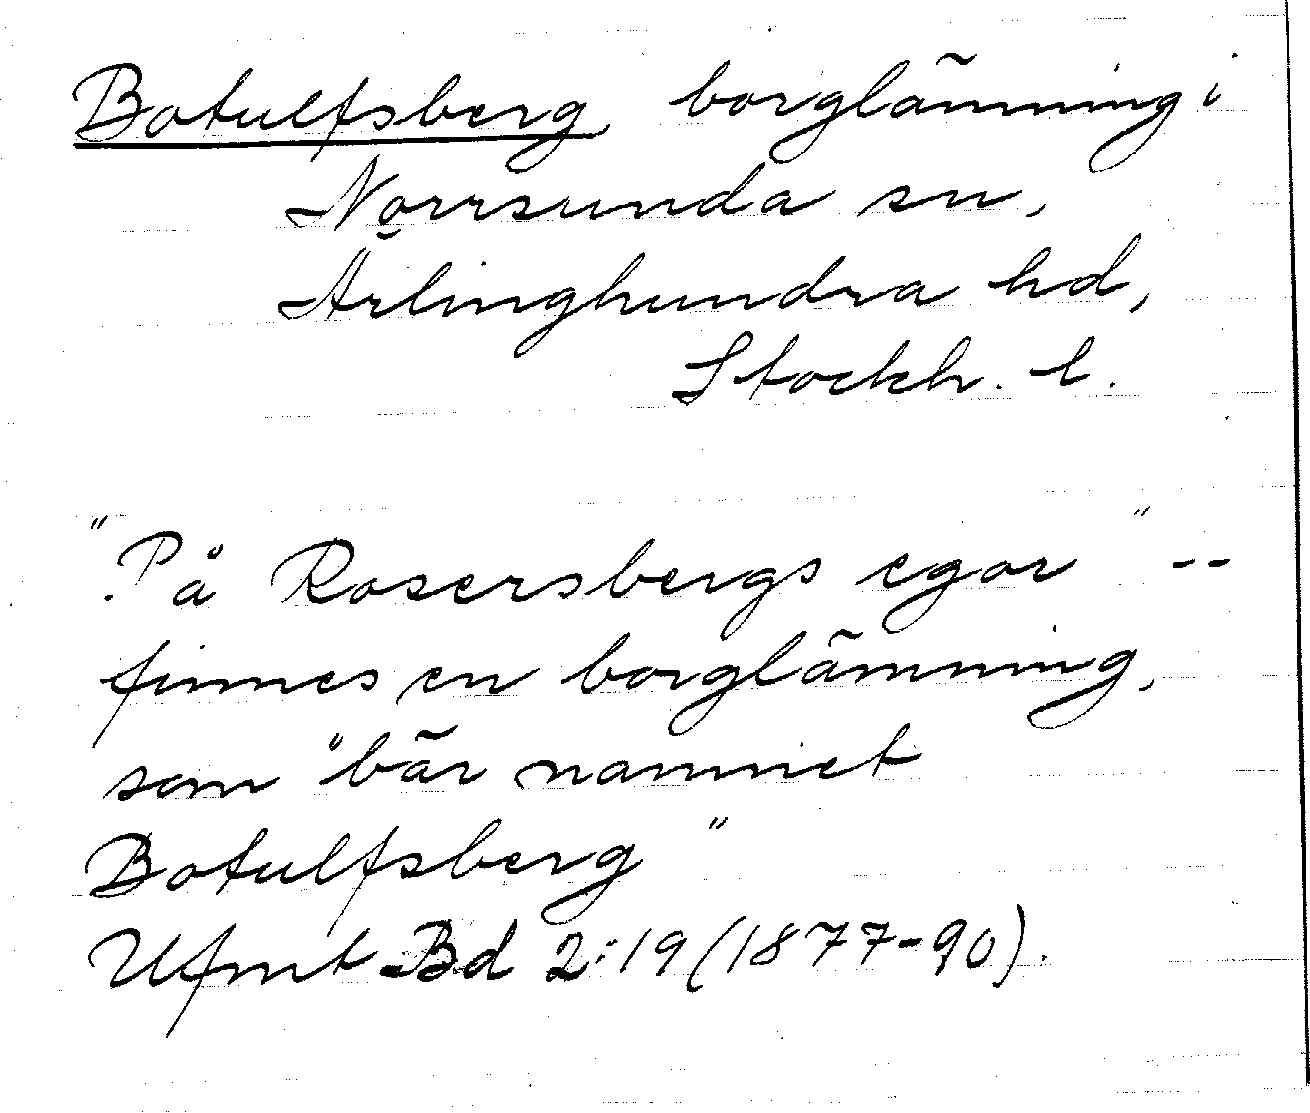 Botulfsberg, borglämning i
Norrsunda sn,
Ärlinghundra hd,
Stockh. l.
"På Rosersbergs egor" --
finnes en borglämning,
som "bär namnet
Botulfsberg"
Ufmt Bd 2:19 (1877-90).